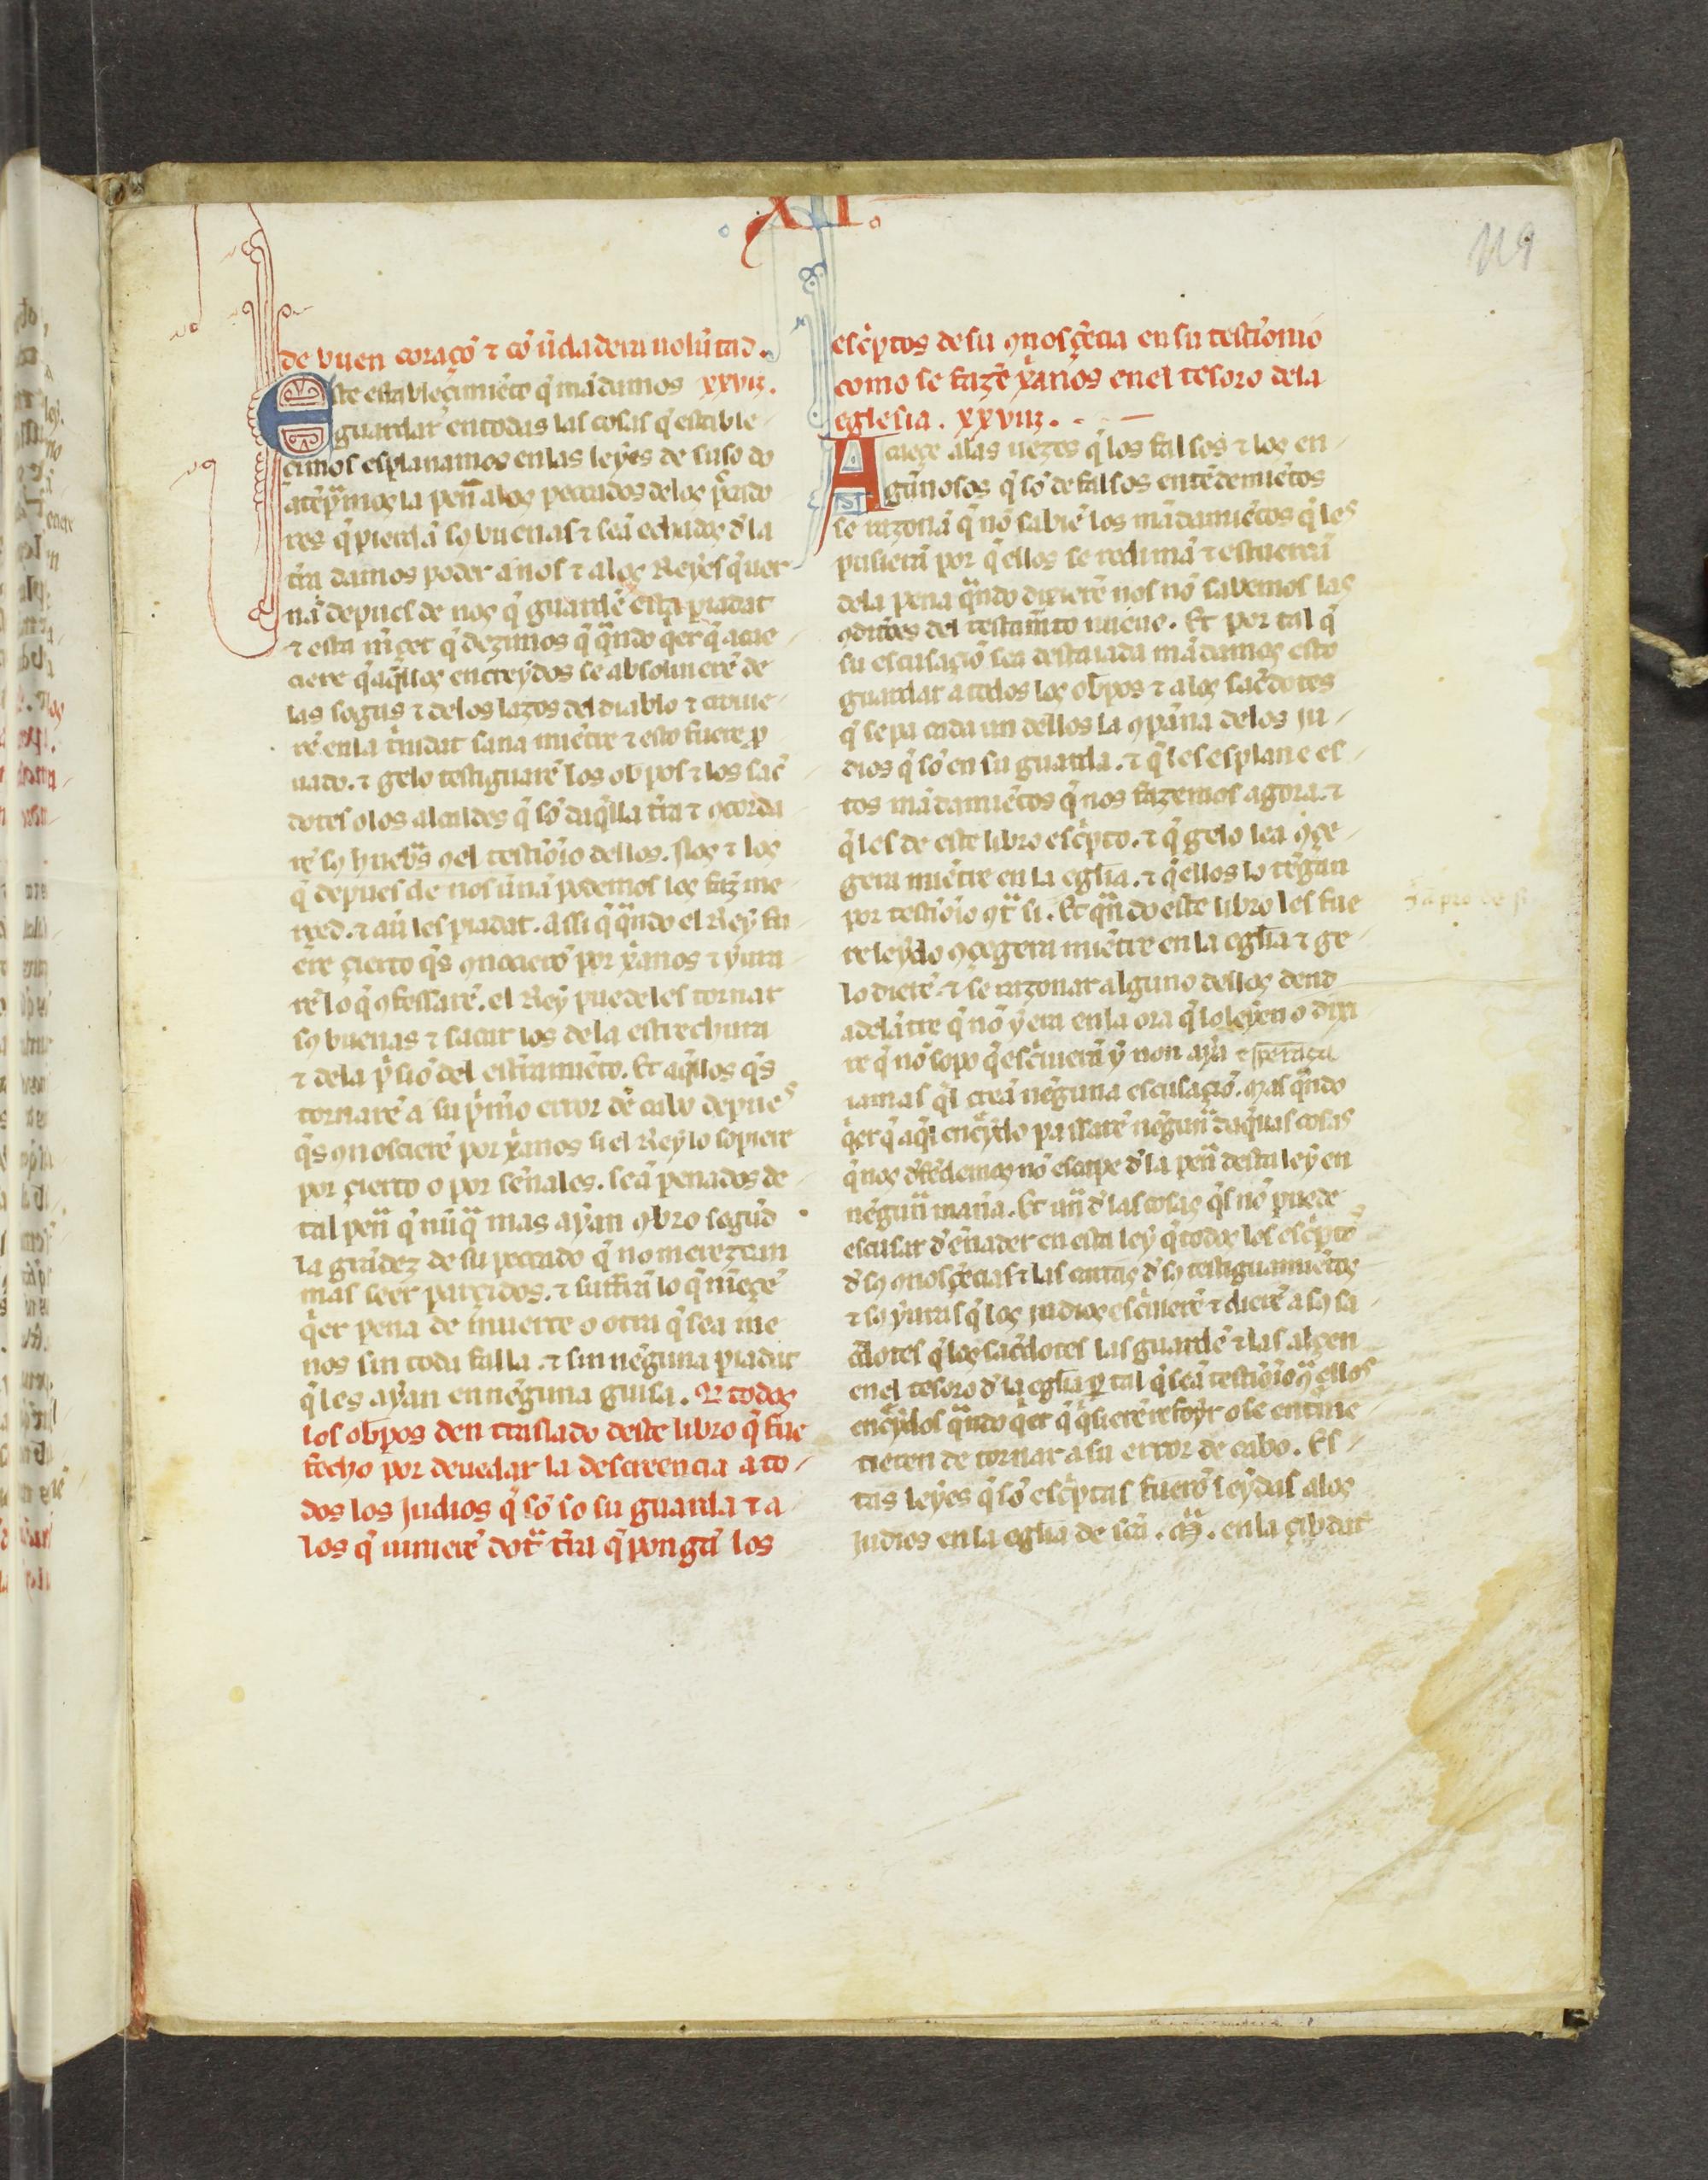 XII.
119
de buen coraçõ ⁊ cõ ũdadera uolũtad.
Este establesçimiẽto q̃ mãdamos xxvij.
guardar en todas las cosas q̃ estable
cimos esplanamos en las leyes de suso do
ro q̃ pierdã sꝯ buenas ⁊ seã echadoꝫ d̃ la
tr̃ra damos poder a nos ⁊ aloꝫ Reyes q̃ uer
nã depues de noꝫ q̃ guardẽ esta piadat
⁊ esta m̃çet q̃ dezimos q̃ q̃ndo q̃er q̃ acae
ciere q̃ aq̃lloꝫ encreydos se absoluierẽ de
las sogas ⁊ de los lazos del diablo ⁊ crouie
rẽ en la tr̃nidat sana miẽtre ⁊ esto fuere ꝓ
uado. ⁊ gelo testiguarẽ los obp̃os ⁊ los sac̃
dotes o los alcaldes q̃ sõ daq̃lla tr̃ra ⁊ ꝯcorda
rẽ sꝯ hueb̃s ꝯ el testiõio dellos. Noꝫ ⁊ loꝫ
q̃ depues de nos ũnã podemos loꝫ faz̃ me
rçed. ⁊ au̇ les piadat. assi q̃ q̃ndo el Rey fu
ere çierto q̃s ꝯnocierõ por xãnos ⁊ yura
rẽ lo q̃ ꝯfessarẽ. el Rey puede les tornar
sꝯ buenas ⁊ sacar los de la estrechura
⁊ de la p̃siõ del estr̃amiẽto. Et aq̃llos q̃s
tornarẽ a su p̃m̃o error de cabo depues
q̃s ꝯnoscierẽ por xãnos si el Rey lo sopiere
por çierto o por señales. seã penados de
tal pen̄a q̃ nũq̃ mas ayan ꝯbro segũd
la grãdez de su peccado q̃ no merezcan
mas seer parçidos. ⁊ suffrã lo q̃ m̃eçẽ
q̃er pena de muerte o otra q̃ sea me
nos sin toda falla. ⁊ sin nẽguna piadat
q̃ les ayan en nẽguna guisa. Q̃ todoꝫ
los obp̃os den traslado deste libro q̃ fue
fecho por deuedar la descreencia a to
dos los judios q̃ sõ so su guarda ⁊ a
los q̃ uinierẽ dot̃ tr̃ra q̃ pongã los
esc̃ptos de su ꝯnosçẽcia en su testimonio
como se fazẽ xãnos en el tesoro dela
eglesia. xxviij.
Acaeçe alas uezes q̃ los falsos ⁊ loꝫ en
gãnosos q̃ sõ de falsos entẽdemiẽtos
se razonã q̃ nõ sabiẽ los mãdamiẽtos q̃ les
pusierã por q̃ ellos se redimã ⁊ estuerçã
dela pena q̃ndo dixierẽ nos nõ sabemos las
ꝯditiões del testamẽto nueuo. Et por tal q̃
su escusaçiõ sea destaiada mãdamoꝫ esto
guardar a todos loꝫ obp̃os ⁊ a loꝫ sac̃dotes
q̃ sepa cada un dellos la ꝯpãna de los ju
dios q̃ sõ en su guarda. ⁊ q̃ les esplane es
tos mãdamiẽtos q̃ nos fazemos agora. ⁊
q̃ les de este libro esc̃pto. ⁊ q̃ gelo lea ꝯçe
gera miẽtre en la eglĩa. ⁊ q̃ ellos lo tẽgan
por testiõio ꝯt̃ si. Et q̃ndo este libro les fue
re leydo ꝯçegera miẽtre en la eglĩa ⁊ ge
lo dierẽ. ⁊ se razonar alguno delloꝫ dend
adelãtre q̃ nõ y era en la ora q̃ lo leyen o dixi
re q̃ nõ sopo q̃ esc̃uierã y non aya esperãça
iamas q̃l creã nẽguna escusaçiõ. Mas q̃ndo
q̃er q̃ aq̃l enc̃ydo passarẽ nẽgun̄ daq̃stas cosas
q̃ noꝫ dẽfẽdemoꝫ nõ escape d̃ la pen̄a desta ley en
nẽgun̄ manã. Et un̄ d̃ las cosas q̃s nõ puede
escusar d̃ eñader en esta ley q̃ todoꝫ los esc̃ptos
d̃ sꝯ ꝯnosçẽcias ⁊ las cartas d̃ sꝯ testiguamiẽtos
⁊ sꝯ yuras q̃ loꝫ judioꝫ esc̃uierẽ ⁊ dierẽ a sꝯ sa
c̃dotes q̃ loꝫ sac̃dotes las guardẽ ⁊ las alçen
en el tesoro d̃ la eglĩa ꝑ tal q̃ seã testiõio ꝯt̃ ellos
enc̃ydos q̃ndo q̃er q̃ q̃sierẽ refoyr o se entrme
tieren de tornar a su error de cabo. Es
tas leyes q̃ sõ esc̃ptas fuerõ leydas aloꝫ
judios en la eglĩa de sc̃a. M̃. en la çibdat